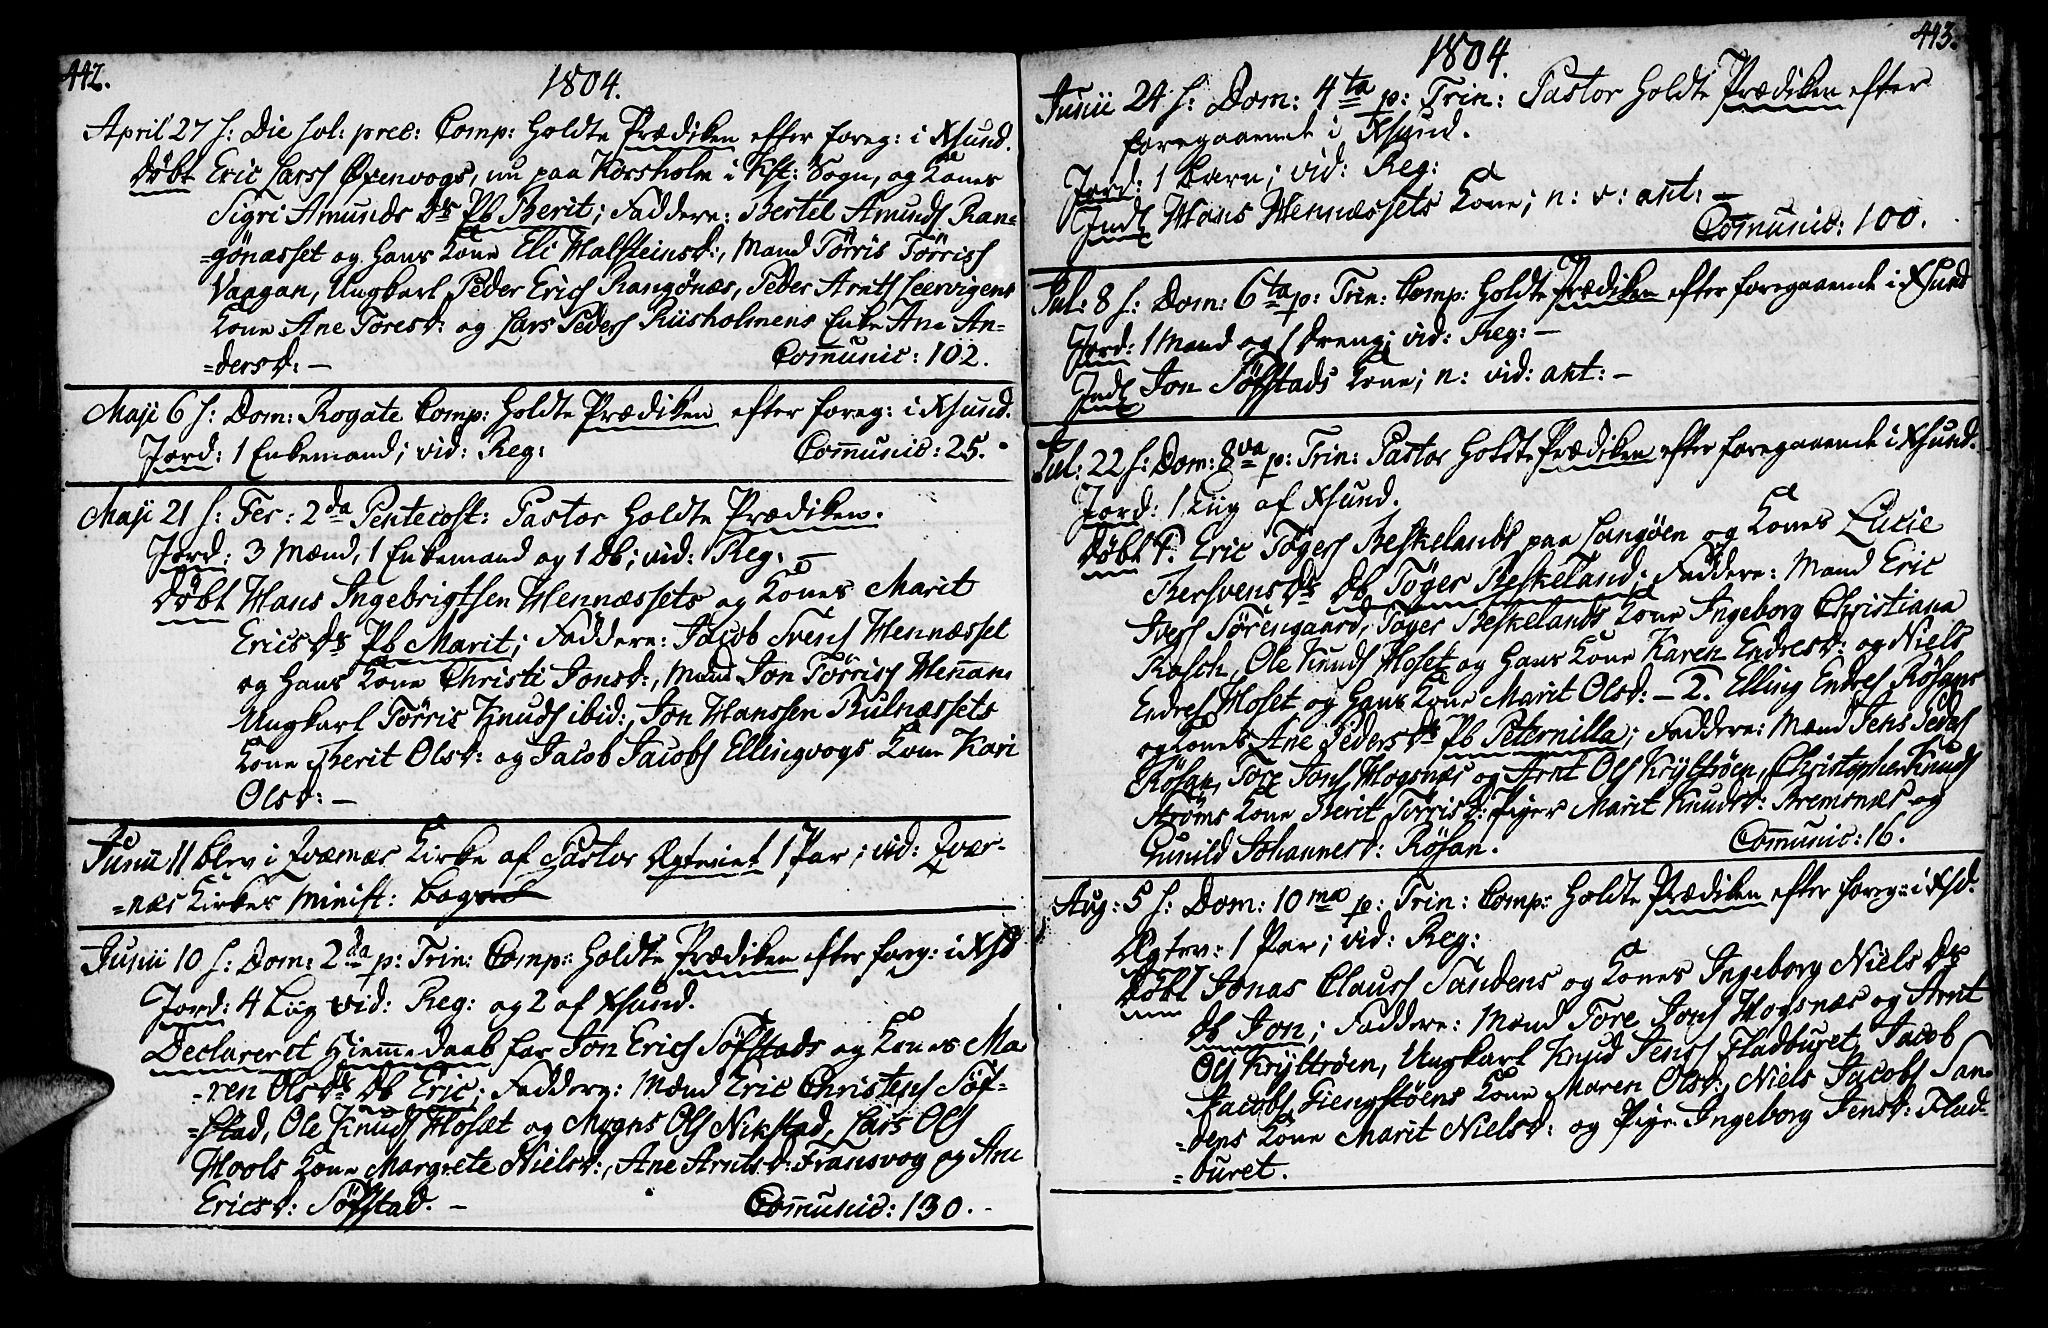 442.
1804.
April 27 h: Die sol: prec: Comp: holdte Prædiken efter foreg: i Xsund.
Døbt Eric Larss Øxenvogs, nu paa Korsholm i Kst: Sogn, og Kones
Sigri Amunds Dr Pb Berit; Faddere: Bertel Amunds Ran-
=gönæsset og hans Kone Eli Halsteinsd:, Mand Törris Törriss
Vaagan, Ungkarl Peder Erics Rangönæs, Peder Arnts Leervigens
Kone Ane Toresd: og Lars Peders Riisholmens Enke Ane An-
=dersd: —
Communic: 102.
Maji 6 h: Dom: Rogate Comp: holdte Prædiken efter foreg: i Xsund.
Jord: 1 Enkemand; vid: Reg:
Communic: 25.
Maji 21 h: Fer: 2da Pentecost: Pastor holdte Prædiken.
Jord: 3 Mænd, 1 Enkemand og 1 Db; vid: Reg: —
Döbt Hans Ingebrigtsen Hennæssets og Kones Marit
Erics Dr Pb Marit; Faddere: Jacob Svens Hennæsset
og hans Kone Christi Jonsd:, Mand Jon Törriss Hennæs,
Ungkarl Törris Knuds ibid:, Jon Hanssen Bulnæssets
Kone Berit Olsd: og Jacob Jacobs Ellingvogs Kone Kari
Olsd: —
Junii 11 blev i Qværnæs Kirke af Pastor Ægteviet 1 Par; vid: Qvær-
=næs Kirkes Minist: Bog
Junii 10 h: Dom: 2da p: Trin: Comp: holdte Prædiken efter foreg: i Xsd
Jord: 4 Liig vid: Reg: og 2 af Xsund.
Declareret Hiemmedaab for Jon Erics Söfstads og Kones Ma-
=ren Ols Dr Db Eric; Faddere: Mænd Eric Christens Söf-
=stad, Ole Knuds Hosæt og Mogns Ols Nikstad, Lars Ols
Hools Kone Margrete Nielsd:, Ane Arntsd: Fransvog og Ane
Ericsd: Söfstad. —
Communic: 130.
443.
1804.
Junii 24 h: Dom: 4ta p: Trin: Pastor holdte Prædiken efter
foregaaende i Xsund.
Jord: 1 Barn; vid: Reg:
Indl Hans Hennæssets Kone; n: v: ant: —
Communic: 100.
Jul: 8 h: Dom: 6ta p: Trin: Comp: holdte Prædiken efter foregaaende i Xsund
Jord: 1 Mand og 1 Dreng; vid: Reg: —
Indl Jon Söfstads Kone; n: vid: ant: —
Jul: 22 h: Dom: 8va p: Trin: Pastor holdte Prædiken efter foregaaende i Xsund.
Jord: 1 Liig af Xsund.
Döbt 1. Eric Tögers Beskelands paa Langöen og Kones Lucie
Bersvens Dr Db Töger Beskeland; Faddere: Mand Eric
Ivers Sörengaard, Töger Beskelands Kone Ingeborg Christiana
Rasch, Ole Knuds Hoset og hans Kone Karen Endresd: og Niels
Endres Hoset og hans Kone Marit Olsd: — 2. Elling Endres Rösans
og Kones Ane Peders Dr Pb Peternilla; Faddere: Mænd Jens Peders
Rösan, Tore Jons Hogsnæs og Arnt Ols Kryltröen, Christopher Knuds
Ströms Kone Berit Törrisd: Piger Marit Knudsd: Bremsnæs og
Gunild Johannesd: Rösan.
Communic: 16.
Aug: 5 h: Dom: 10ma p: Trin: Comp: holdte Prædiken efter foreg: i Xsd.
Ægtev: 1 Par; vid: Reg:
Döbt Jonas Clauss Sandens og Kones Ingeborg Niels Dr
Db Jon; Faddere: Mænd Tore Jons Hogsnæs og Arnt
Ols Kryltröen, Ungkarl Knud Jenss Fladburet, Jacob
Jacobs Giengstöens Kone Maren Olsd:, Niels Jacobs San-
=dens Kone Marit Nielsd: og Pige Ingeborg Jensd: Flad-
=buret.